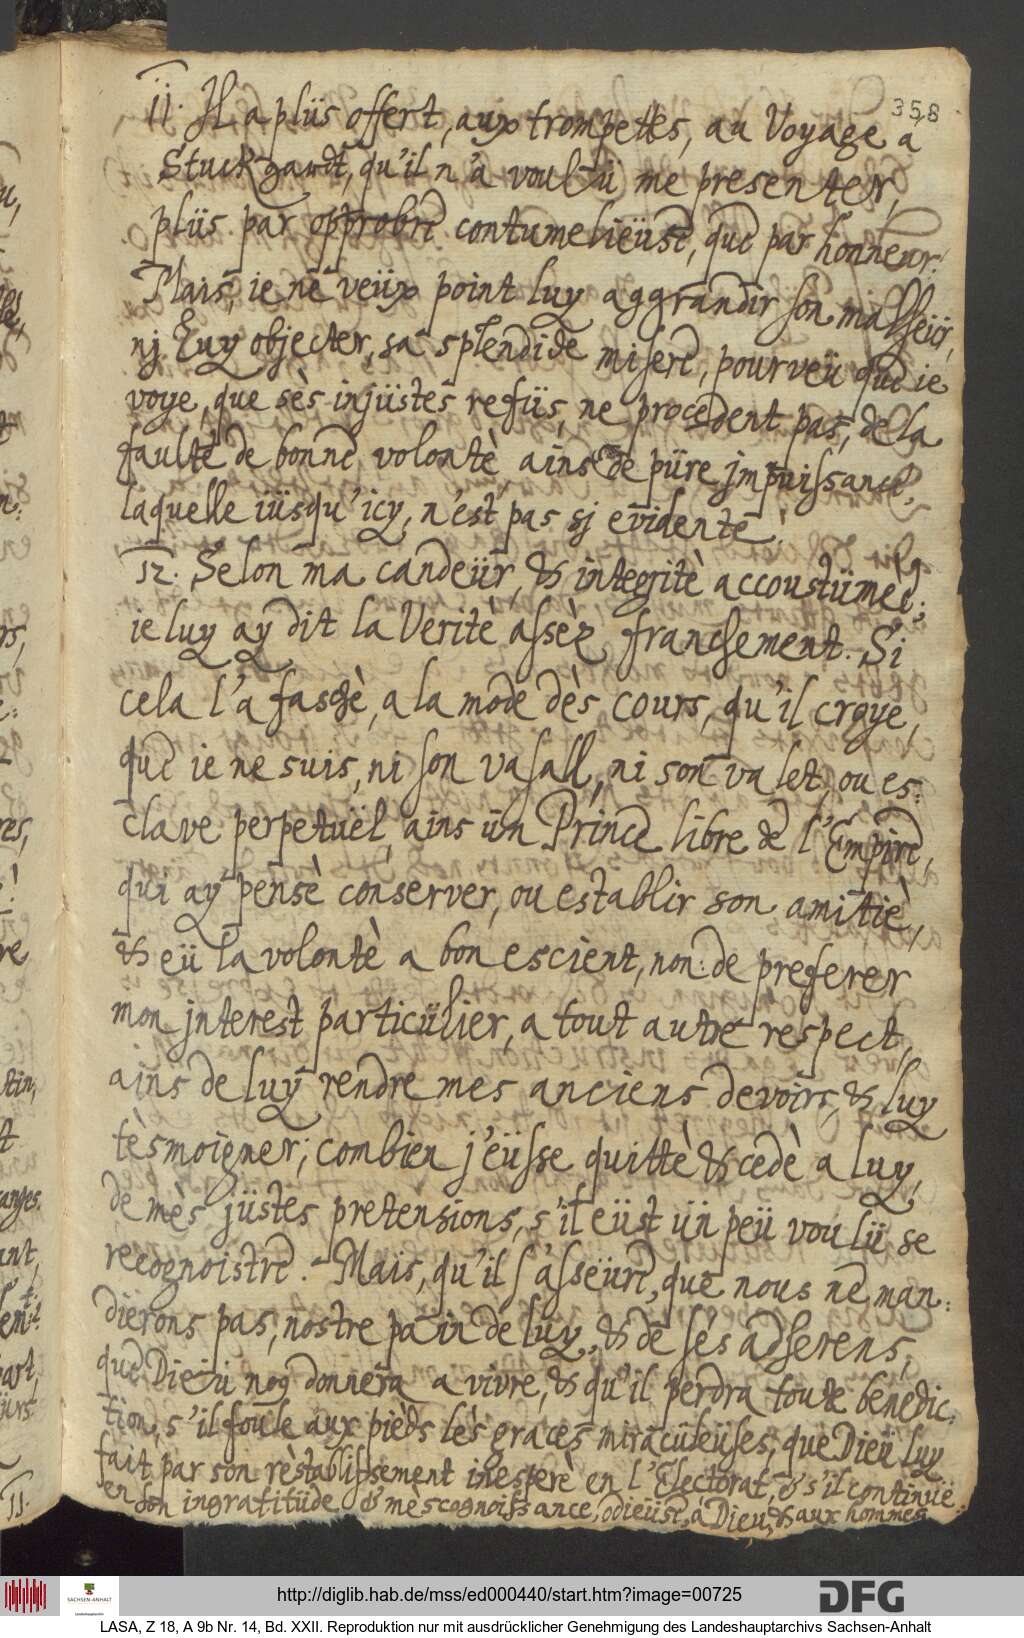 358
11. Il a plüs offert, aux trompettes, au Voyage a
Stuckgardt, qu'il n'a voulü me presenter,
plüs par opprobre contumelieüse, que par honneur.
Mais, ie ne veüx point luy aggrandir son malheür,
nj luy objecter, sa splendide misere, pourveü que ie
voye, que sès injüstes refüs, ne procedent pas, de la
faulte de bonne volontè, ains de püre jmpuissance,
laquelle iüsqu'icy, n'est pas sj evidente.
12. Selon ma candeür, & integritè accoustümee;
ie luy ay dit la Veritè assèz franchement. Si
cela l'a faschè, a la mode dès cours, qu'il croye,
que ie ne suis, ni son vasall, ni son valet, ou es:
clave perpetuël, ains ün Prince libre de l'Empire,
qui ay pensè conserver, ou establir son amitiè,
& eü la volontè a bon escient, non de preferer
mon jnterest particülier, a tout autre respect,
ains de luy rendre mes anciens devoirs, & luy
tèsmoigner; combien j'eüsse quittè & cedè a luy,
de mès jüstes pretensions, s'il eüst ün peü voulü se
recognoistre. Mais, qu'il s'asseüre, que nous ne man:
dierons pas, nostre pain de luy, & de sès adherens,
que Dieü nous donnera a vivre, & qu'il perdra toute benedic:
tion, s'il foule aux pièds lès graces miracüleüses, que Dieü luy
fait par son rèstablissement inesperè en l'Electorat, & s'il continüe
en son ingratitüde & mèscognoissance, odieüse, à Dieu, & aux hommes.
11.
http://diglib.hab.de/mss/ed000440/start.htm?image=00725
SACHSEN-ANHALT
Landeshauptarchiv
DFG
LASA, Z 18, A 9b Nr. 14, Bd. XXII. Reproduktion nur mit ausdrücklicher Genehmigung des Landeshauptarchivs Sachsen-Anhalt